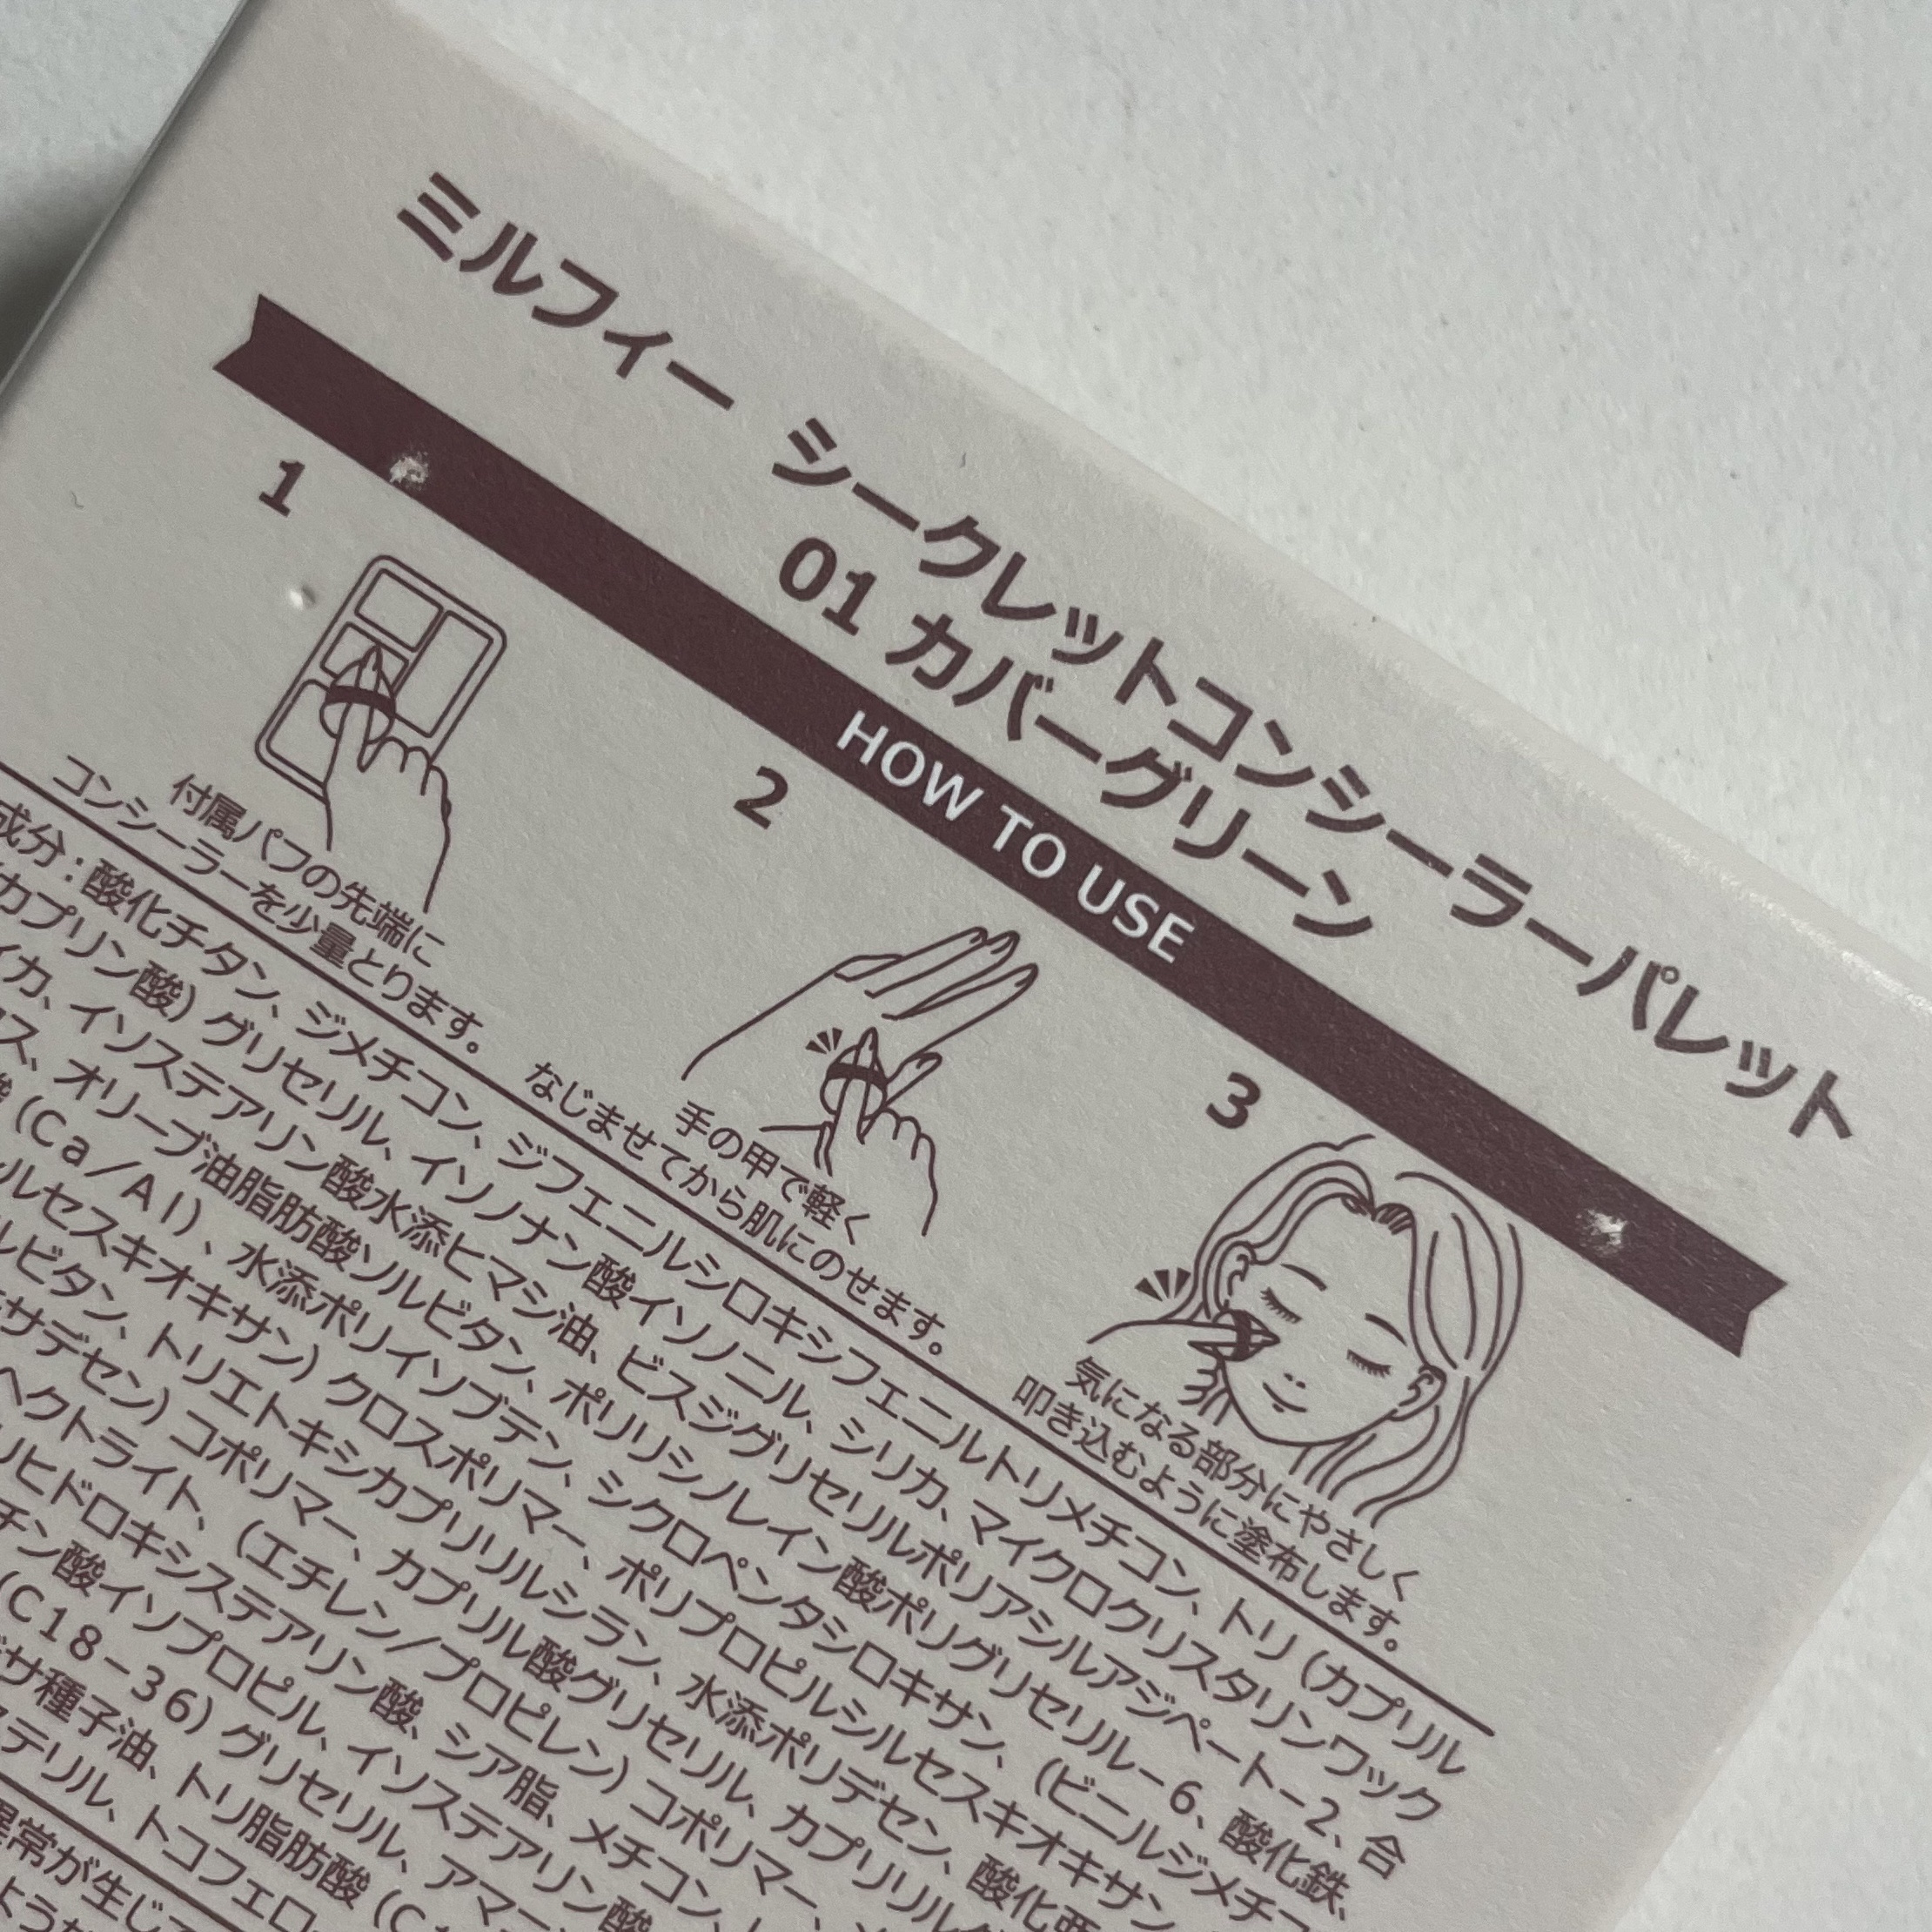 ミルフィー シークレットコンシーラーパレット
01 カバーグリーン
HOW TO USE
1
付属パフの先端に
コンシーラーを少量とります。
2
手の甲で軽く
なじませてから肌にのせます。
3
気になる部分にやさしく
叩き込むように塗布します。
成分：酸化チタン、ジメチコン、ジフェニルシロキシフェニルトリメチコン、トリ（カプリル
カプリン酸）グリセリル、イソノナン酸イソノニル、シリカ、マイクロクリスタリンワック
イカ、イソステアリン酸水添ヒマシ油、ビスジグリセリルポリアシルアジペート−2、合
ス、オリーブ油脂肪酸ソルビタン、ポリリシノレイン酸ポリグリセリル−6、酸化鉄、
酸（Ca／Al）、水添ポリイソブテン、シクロペンタシロキサン、（ビニルジメチコ
ルセスキオキサン）クロスポリマー、ポリプロピルシルセスキオキサン
ルビタン、トリエトキシカプリリルシラン、水添ポリデセン、酸化亜
サデセン）コポリマー、カプリル酸グリセリル、カプリリル
ヘクトライト、（エチレン／プロピレン）コポリマー、
ヒドロキシステアリン酸、シア脂、メチコン、
チン酸イソプロピル、イソステアリン酸
（C18−36）グリセリル、アマ
サ種子油、トリ脂肪酸（C
ステリル、トコフェロ
異常が生じ